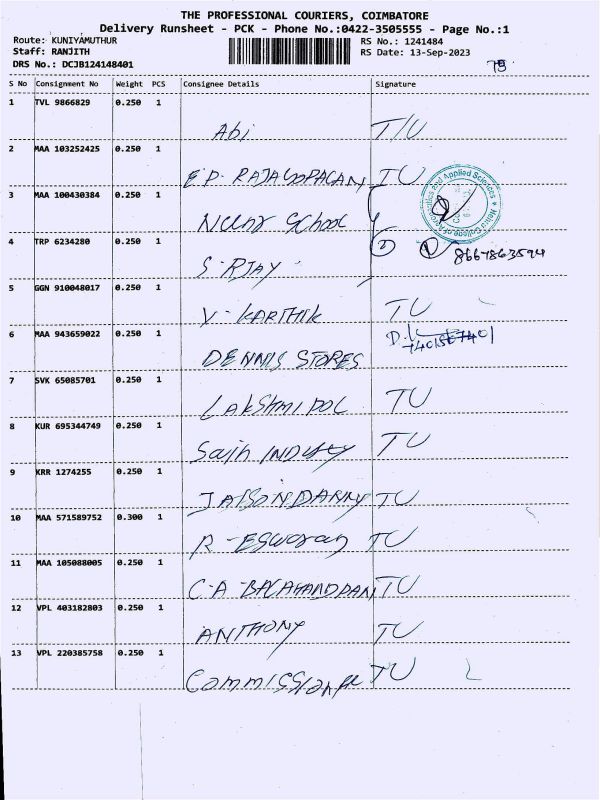 THE PROFESSIONAL COURIERS, COIMBATORE
Delivery Runsheet - PCK - Phone No.:0422-3505555 - Page No.:1
Route: KUNIYAMUTHUR RS No.: 1241484
Staff: RANJITH RS Date: 13-Sep-2023
DRS No.: DCJB124148401
S No Consignment No Weight PCS Consignee Details Signature
1 TVL 9866829 0.250 1
Abi T/U
2 MAA 103252425 0.250 1
E.P. RAJAGOPALAN TU
3 MAA 100430384 0.250 1
School
4 TRP 6234280 0.250 1
2 8667863594
S.
5 GGN 910048017 0.250 1
V. KARTHIK TU
6 MAA 943659022 0.250 1
DENNIS STORES
7 SVK 65085701 0.250 1
LAKSHMI TU
8 KUR 695344749 0.250 1
TU
9 KRR 1274255 0.250 1
JAISON DANNY TU
10 MAA 571589752 0.300 1
R. Eswaran TU
11 MAA 105088005 0.250 1
C.A. TU
12 VPL 403182803 0.250 1
ANTHONY TU
13 VPL 220385758 0.250 1
TU